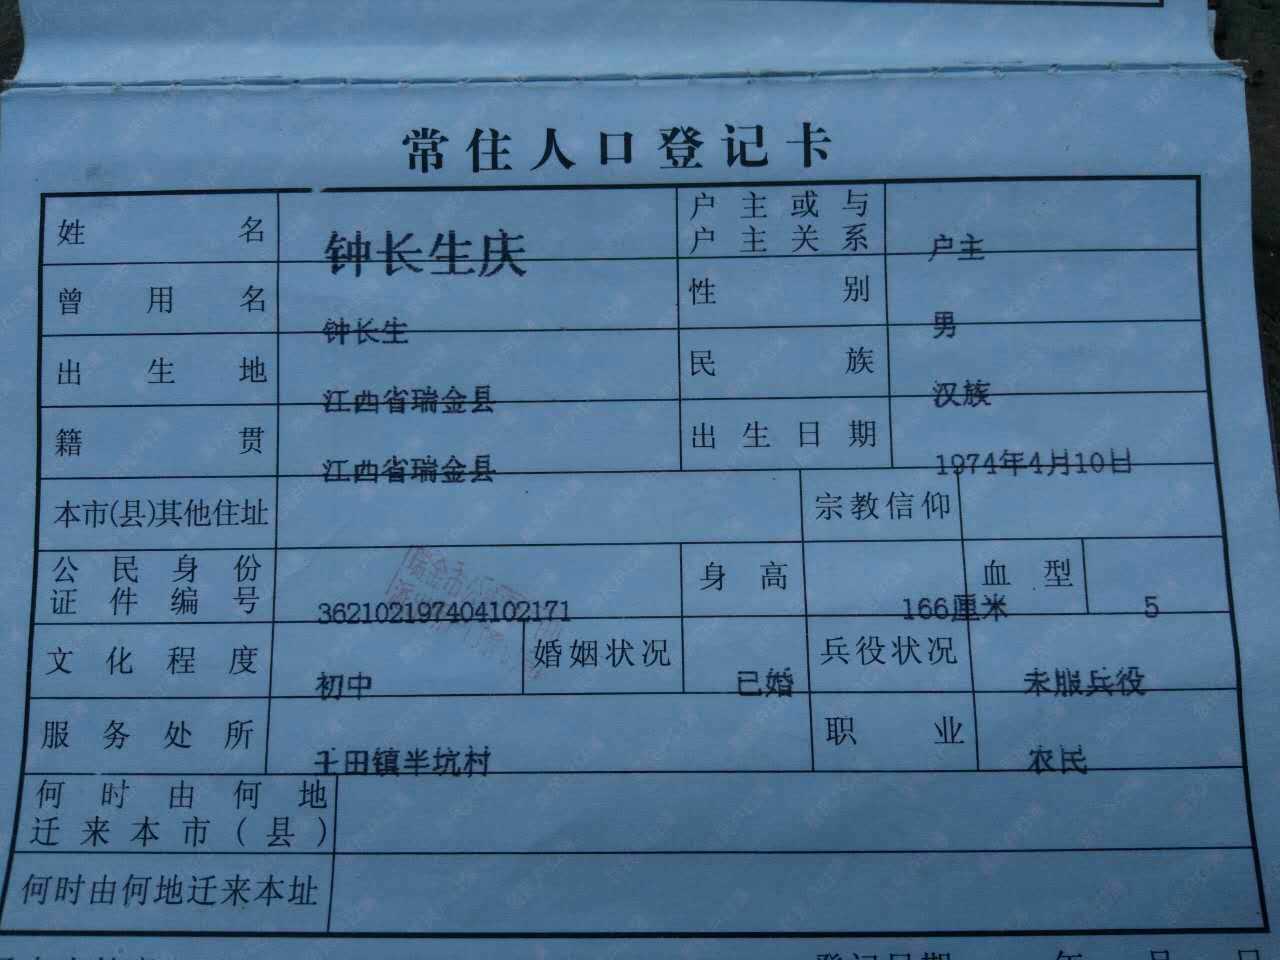 常住人口登记卡
姓名 钟长生庆 户主或与户主关系 户主
曾用名 钟长生 性别 男
出生地 江西省瑞金县 民族 汉族
籍贯 江西省瑞金县 出生日期 1974年4月10日
本市(县)其他住址 宗教信仰
公民身份证件编号 362102197404102171 身高 166厘米 血型 5
文化程度 初中 婚姻状况 已婚 兵役状况 未服兵役
服务处所 壬田镇半坑村 职业 农民
何时由何地迁来本市(县)
何时由何地迁来本址
登记日期 年 月 日